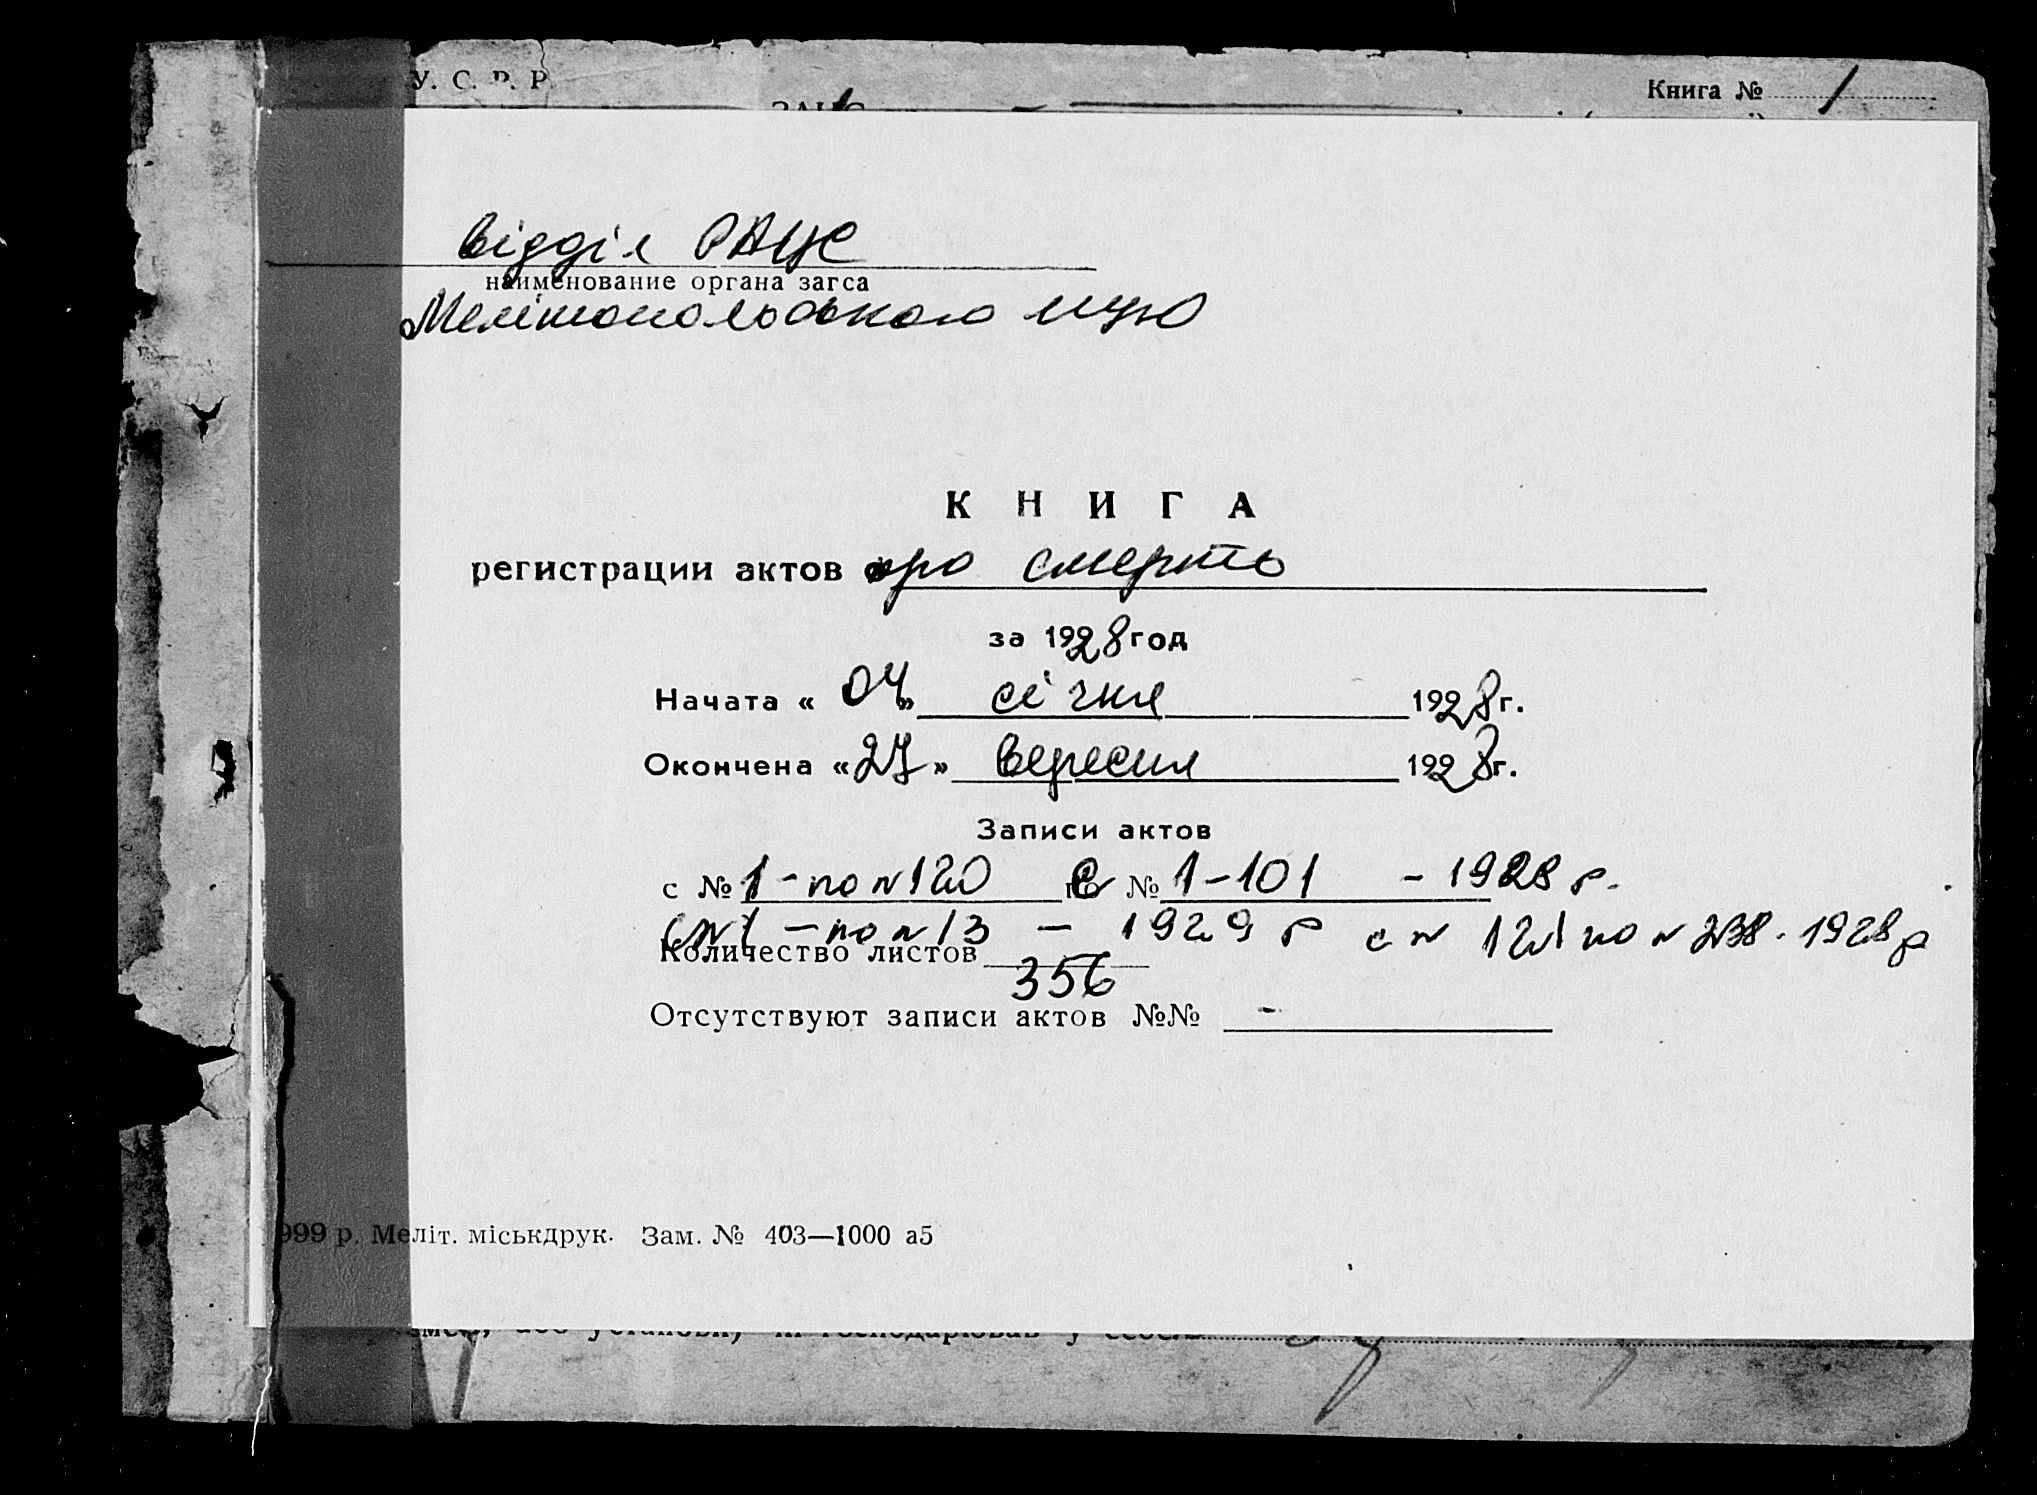 У. С. Р. Р.
Книга № 1
відділ РАЦС
наименование органа загса
Мелітопольського МУЮ
КНИГА
регистрации актов про смерть
за 1928 год
Начата « 04 » січня 1928 г.
Окончена « 27 » вересня 1928 г.
Записи актов
с № 1 - по № 120 с № 1-101 - 1928 р.
с № 1 - по № 13 - 1929 р с № 121 по № 238 - 1928 р
Количество листов 356
Отсутствуют записи актов №№ -
999 р. Меліт. міськдрук. Зам. № 403—1000 а5